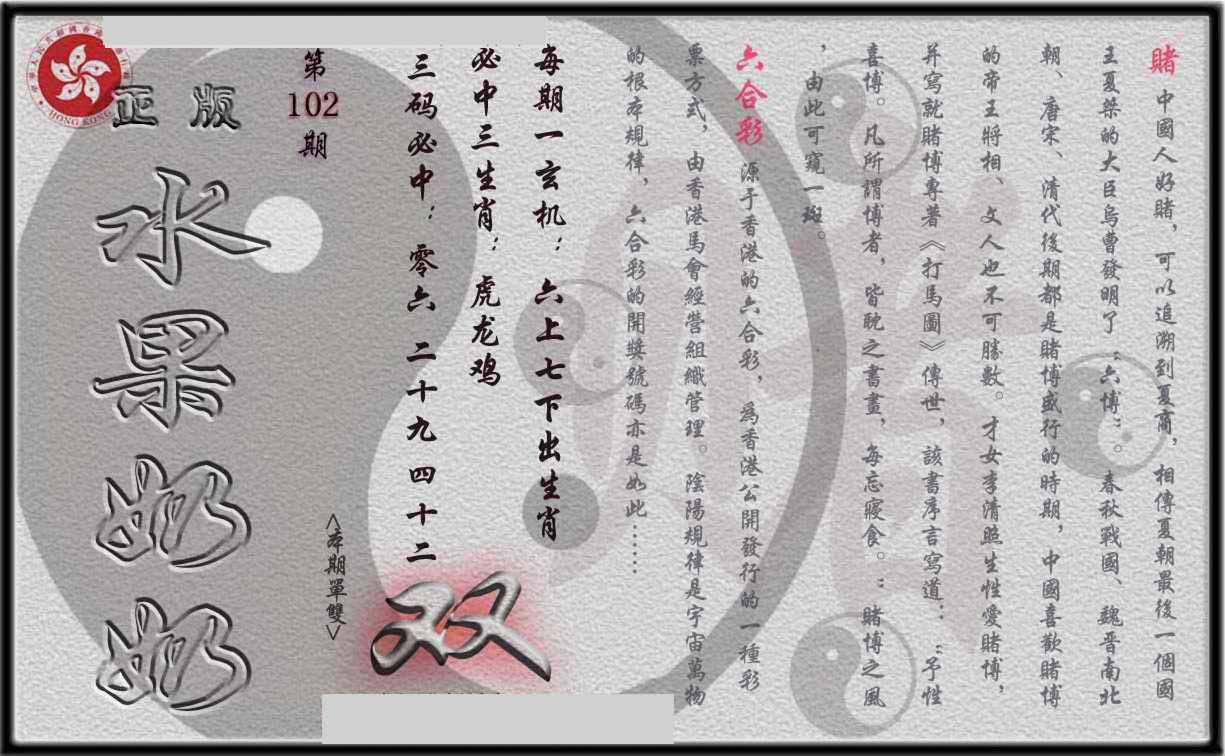 賭 中國人好賭，可以追溯到夏商，相傳夏朝最後一個國
王夏桀的大臣烏曹發明了“六博”。春秋戰國、魏晋南北
朝、唐宋、清代後期都是賭博盛行的時期，中國喜歡賭博
的帝王將相、文人也不可勝數。才女李清照生性愛賭博，
并寫就賭博專著《打馬圖》傳世，該書序言寫道：“予性
喜博。凡所謂博者，皆耽之書畫，每忘寢食。”賭博之風
，由此可窺一斑。
六合彩 源于香港的六合彩，爲香港公開發行的一種彩
票方式，由香港馬會經營組織管理。陰陽規律是宇宙萬物
的根本規律，六合彩的開獎號碼亦是如此……
每期一玄机：六上七下出生肖
必中三生肖：虎龙鸡
三码必中：零六 二十九 四十二
<本期單雙>
双
第
102
期
正版
水果奶奶
HONG KONG